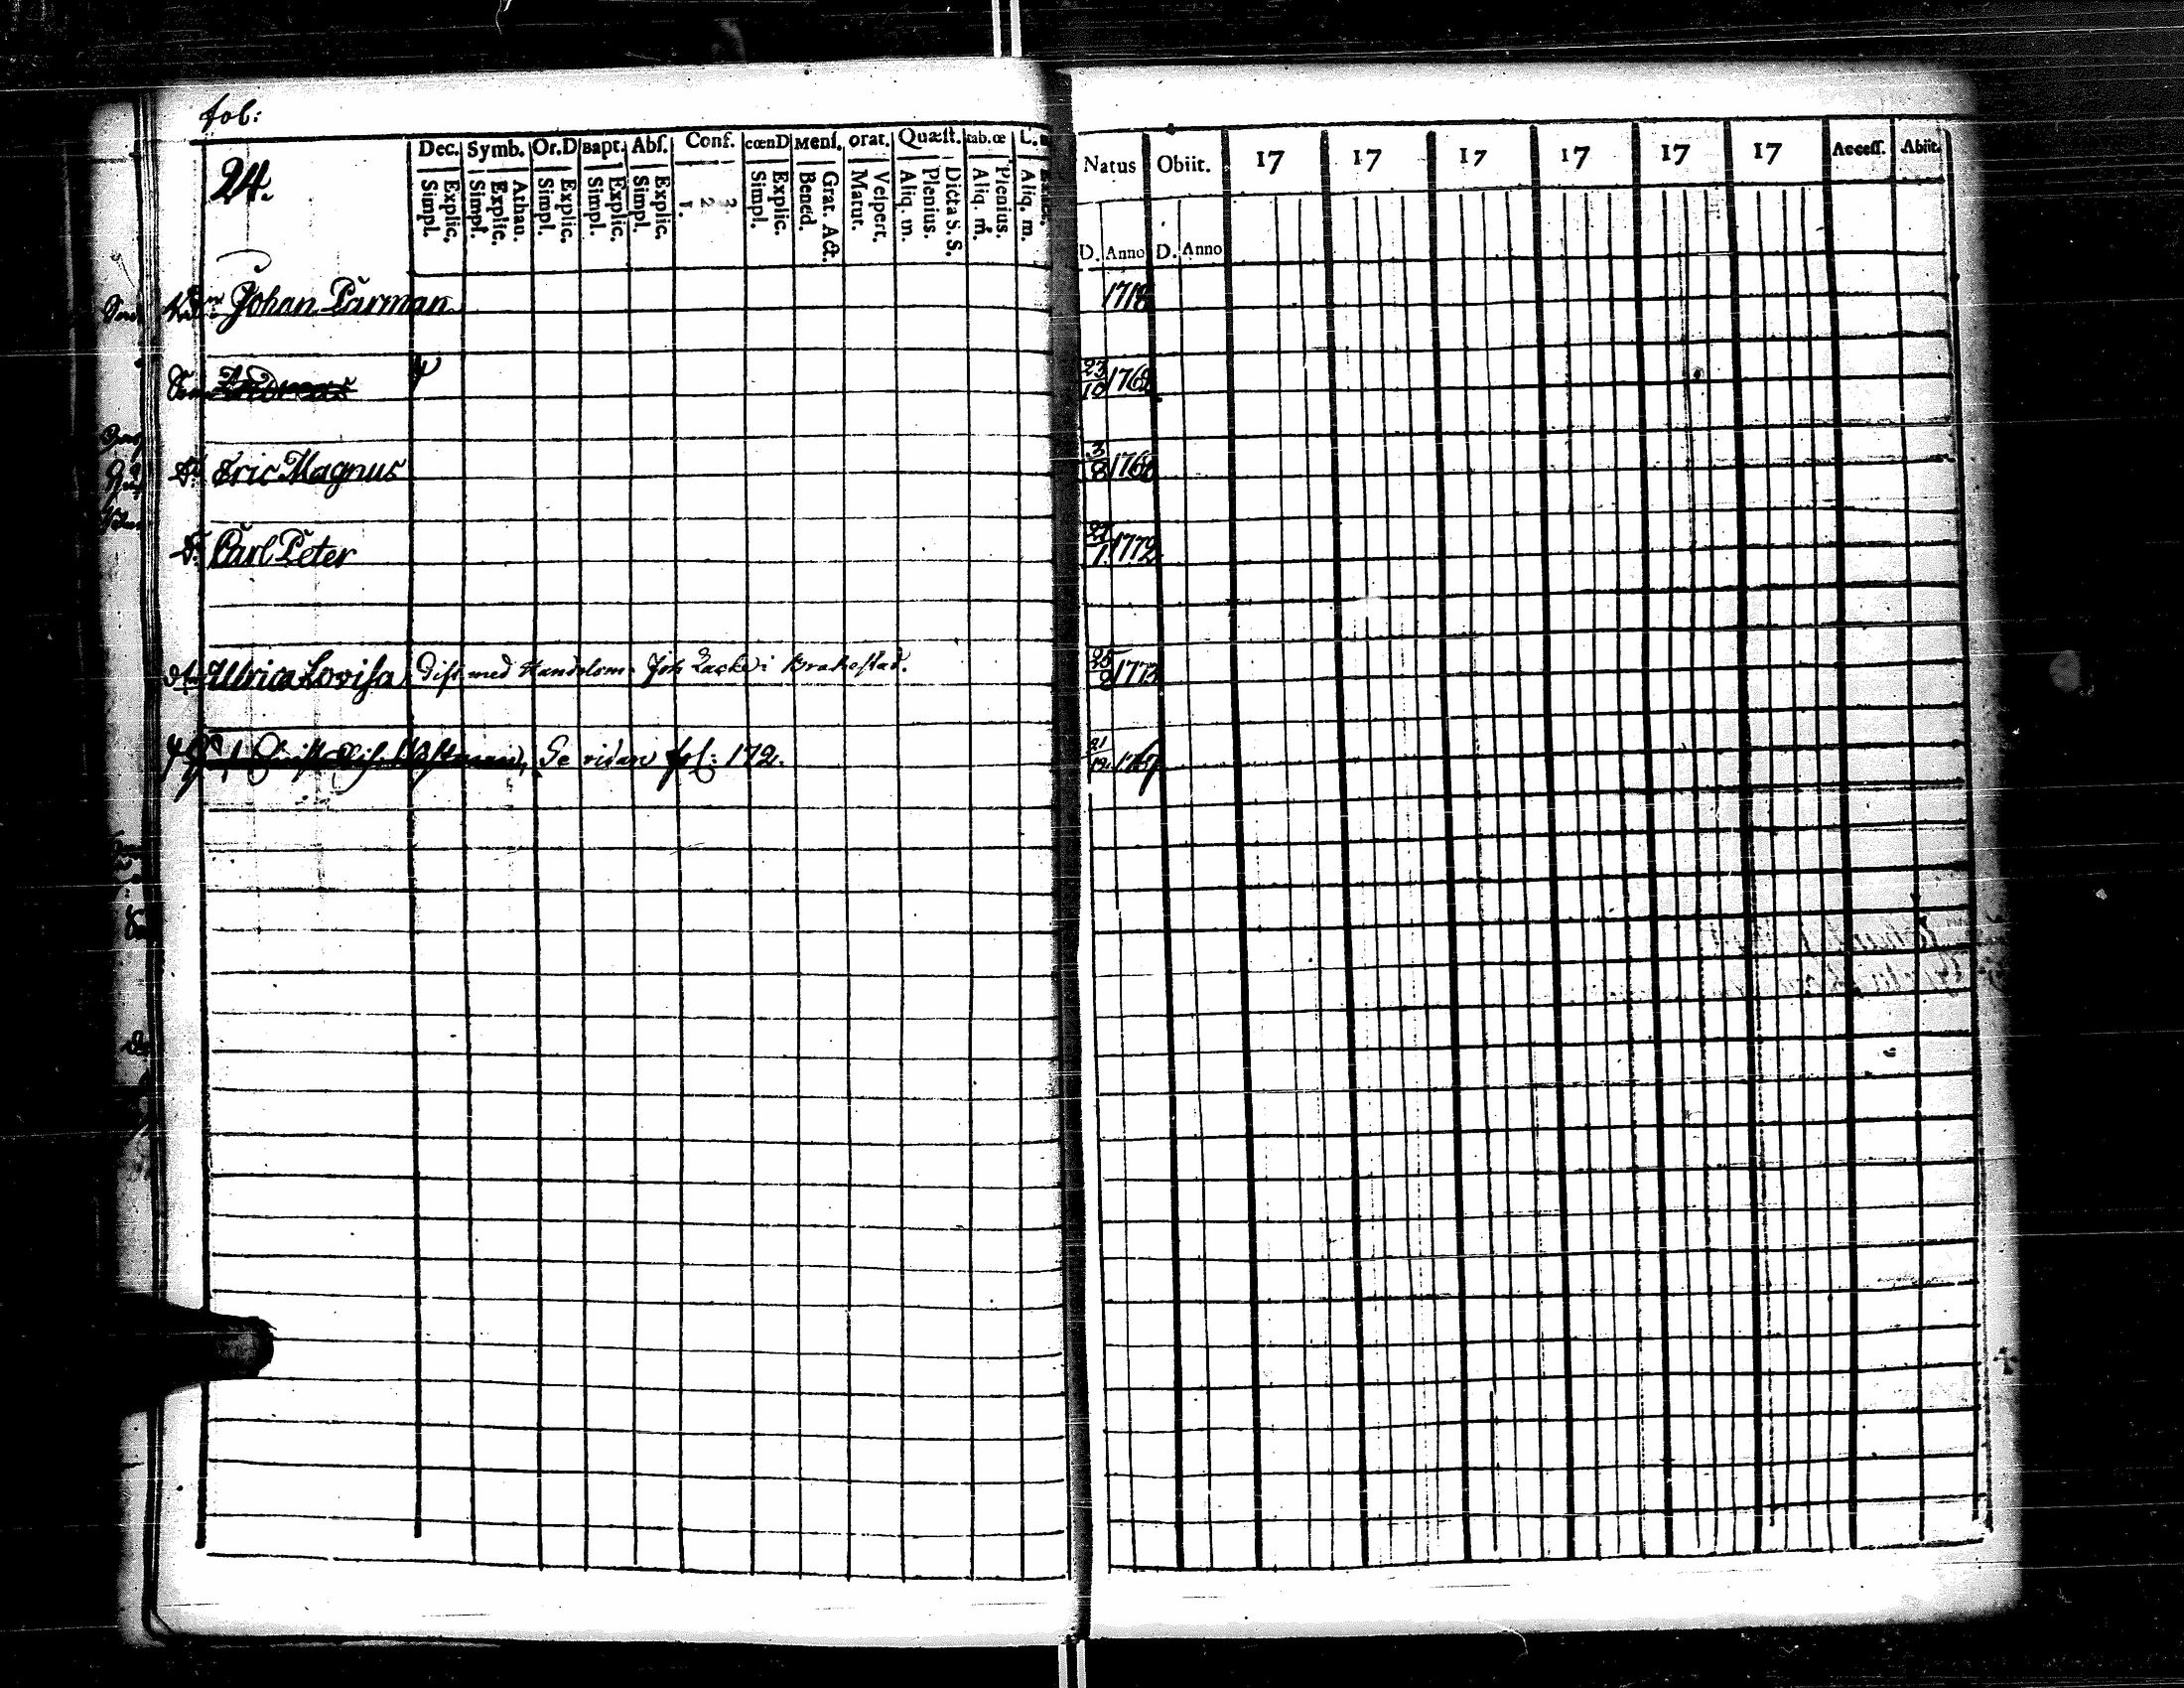 fol:
24.
Dec. Symb. Or.D Bapt. Abſ. Conf. cœnD Menſ. orat. Quæſt. tab.œ L.
Simpl. Explic. Simpl. Explic. Athan. Simpl. Explic. Simpl. Explic. Simpl. Explic. 1. 2. 3. Simpl. Explic. Bened. Grat. Act. Matut. Veſpert. Aliq. m. Plenius. Dicta S. S. Aliq. m. Plenius. Aliq. m.
Natus Obiit. 17 17 17 17 17 17 Acceſſ. Abiit.
D. Anno D. Anno
Johan Parman 1718
23/10 1768
Eric Magnus 3/8 1766
Carl Peter 27/1 1772
Ulrica Lovisa Dist med Handelsm. Joh Lacke i Brahestad. 25/8 1773
Se vidare fol: 172. 21/12